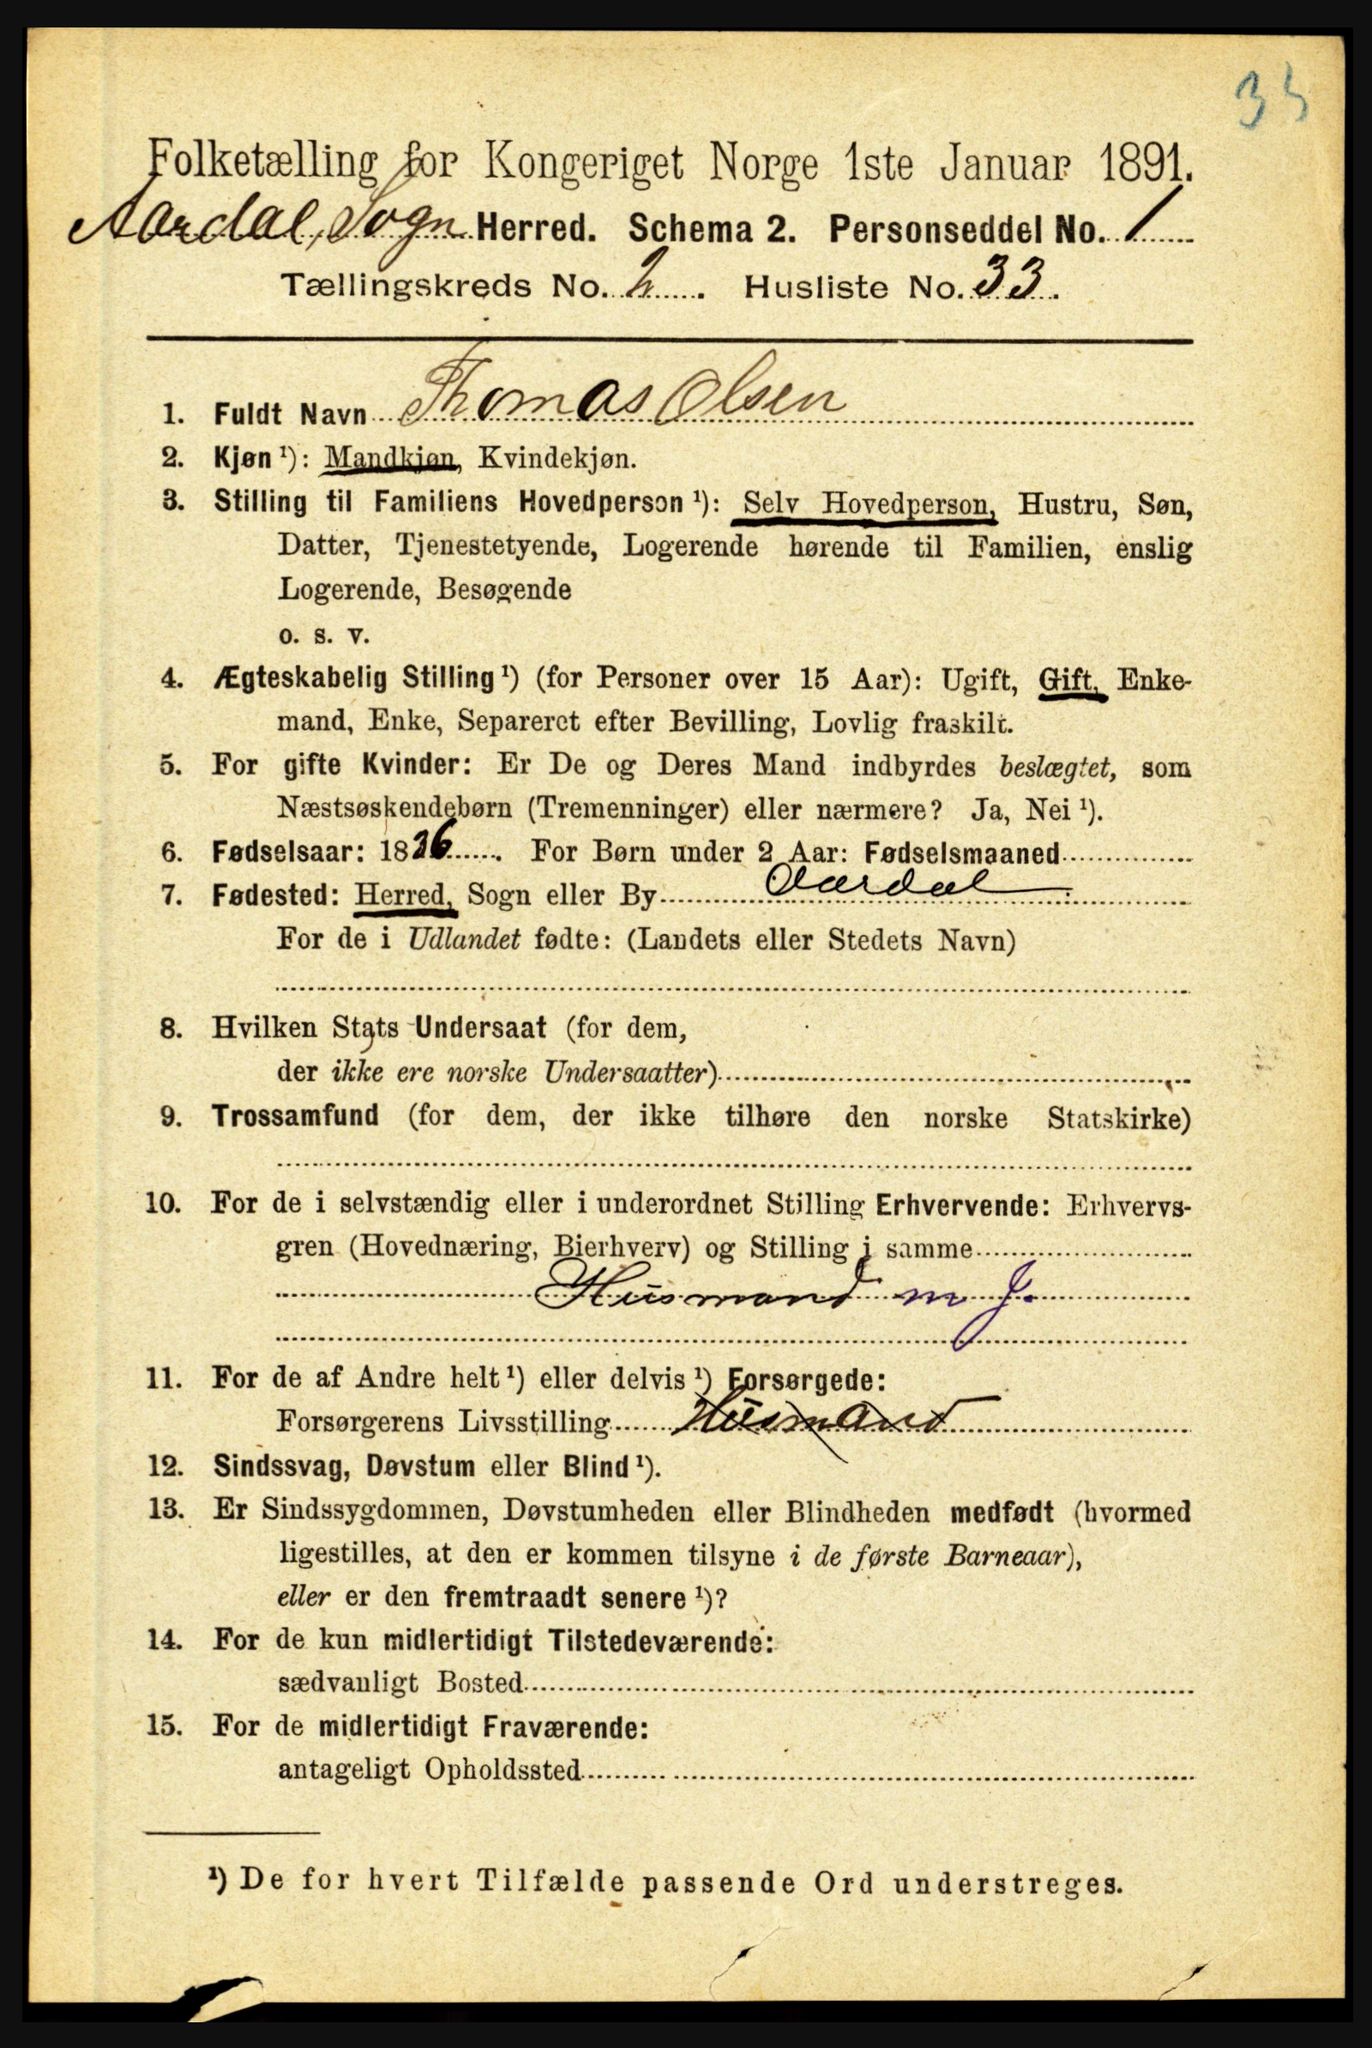 33
Folketælling for Kongeriget Norge 1ste Januar 1891.
Aardal, Sogn Herred. Schema 2. Personseddel No. 1
Tællingskreds No. 2. Husliste No. 33.
1. Fuldt Navn Thomas Olsen
2. Kjøn ¹): Mandkjøn, Kvindekjøn.
3. Stilling til Familiens Hovedperson ¹): Selv Hovedperson, Hustru, Søn,
Datter, Tjenestetyende, Logerende hørende til Familien, enslig
Logerende, Besøgende
o. s. v.
4. Ægteskabelig Stilling ¹) (for Personer over 15 Aar): Ugift, Gift, Enke-
mand, Enke, Separeret efter Bevilling, Lovlig fraskilt.
5. For gifte Kvinder: Er De og Deres Mand indbyrdes beslægtet, som
Næstsøskendebørn (Tremenninger) eller nærmere? Ja, Nei ¹).
6. Fødselsaar: 1836. For Børn under 2 Aar: Fødselsmaaned
7. Fødested: Herred, Sogn eller By Aardal
For de i Udlandet fødte: (Landets eller Stedets Navn)
8. Hvilken Stats Undersaat (for dem,
der ikke ere norske Undersaatter)
9. Trossamfund (for dem, der ikke tilhøre den norske Statskirke)
10. For de i selvstændig eller i underordnet Stilling Erhvervende: Erhvervs-
gren (Hovednæring, Bierhverv) og Stilling i samme
Husmand m J.
11. For de af Andre helt ¹) eller delvis ¹) Forsørgede:
Forsørgerens Livsstilling Husmand
12. Sindssvag, Døvstum eller Blind ¹).
13. Er Sindssygdommen, Døvstumheden eller Blindheden medfødt (hvormed
ligestilles, at den er kommen tilsyne i de første Barneaar),
eller er den fremtraadt senere ¹)?
14. For de kun midlertidigt Tilstedeværende:
sædvanligt Bosted
15. For de midlertidigt Fraværende:
antageligt Opholdssted
¹) De for hvert Tilfælde passende Ord understreges.